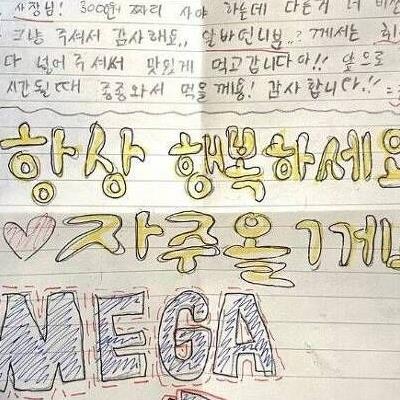 사장님! 3000원 짜리 사야 하는데 다른거 더 비싼
그냥 주셔서 감사해요,, 알바언니분..? 께서는 휘
다 넣어 주셔서 맛있게 먹고갑니다아!! 앞으로
시간될때 종종와서 먹을께용! 감사합니다!!
항상 행복하세요
자주올게
MEGA